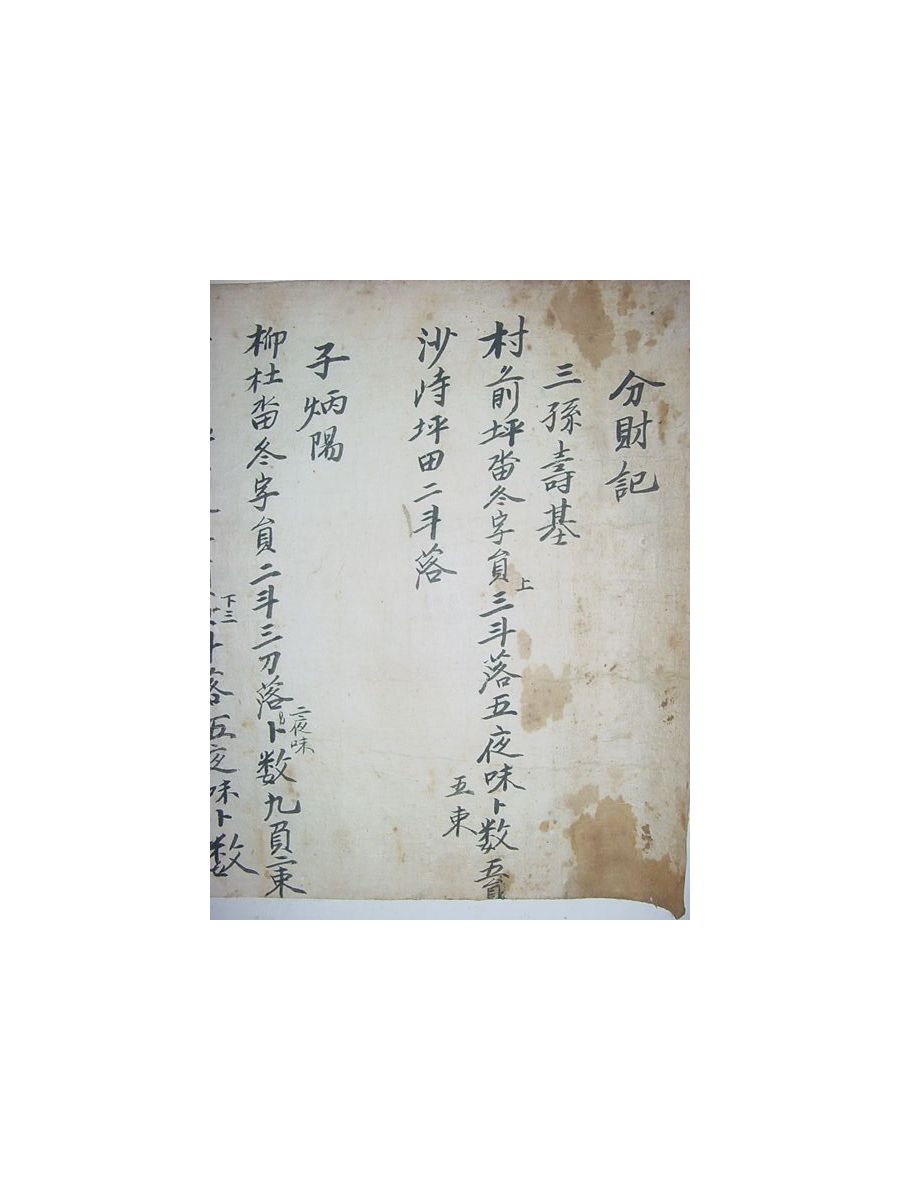 分財記
三孫壽基
村前坪畓冬字員上三斗落五夜味卜数五負
五束
沙峙坪田二斗落
子炳陽
柳杜畓冬字員二斗三刀落二夜味卜数九負二束
下三斗落五夜味卜数